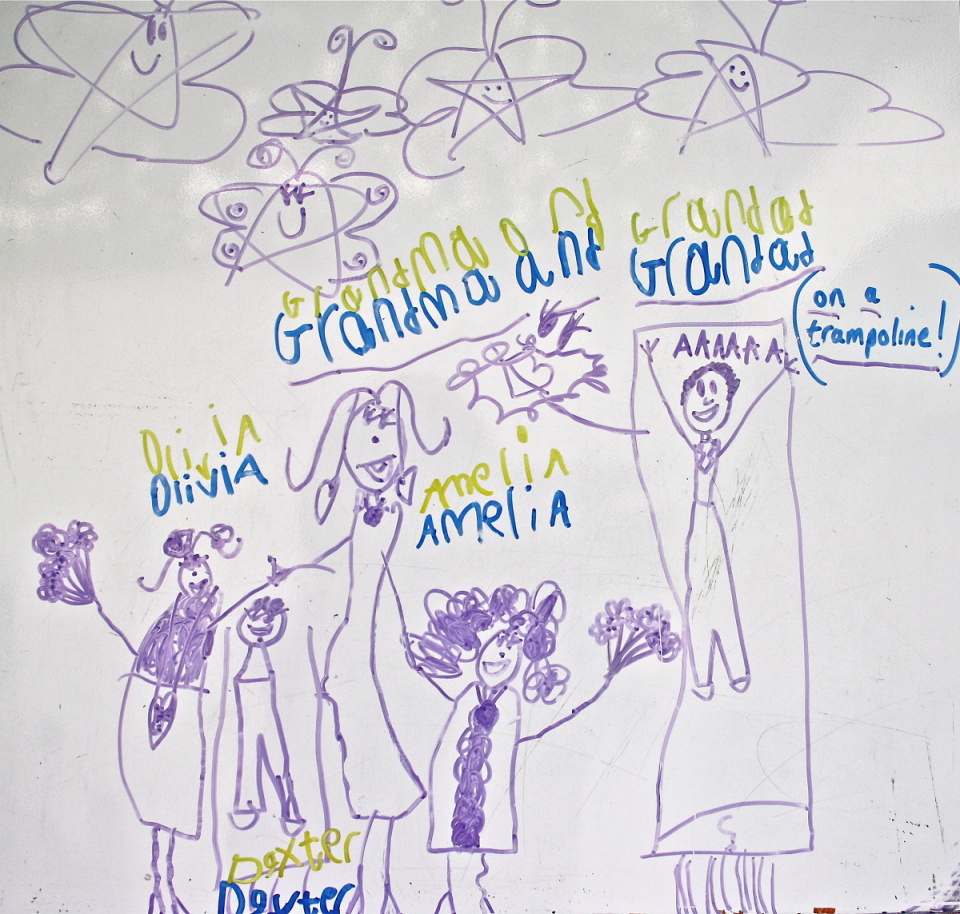 Grandma and
Grandma and
Grandad
Grandad
(on a
trampoline!)
AAAAAA
Olivia
OliviA
AmeliA
AMeliA
Daxter
Daxter